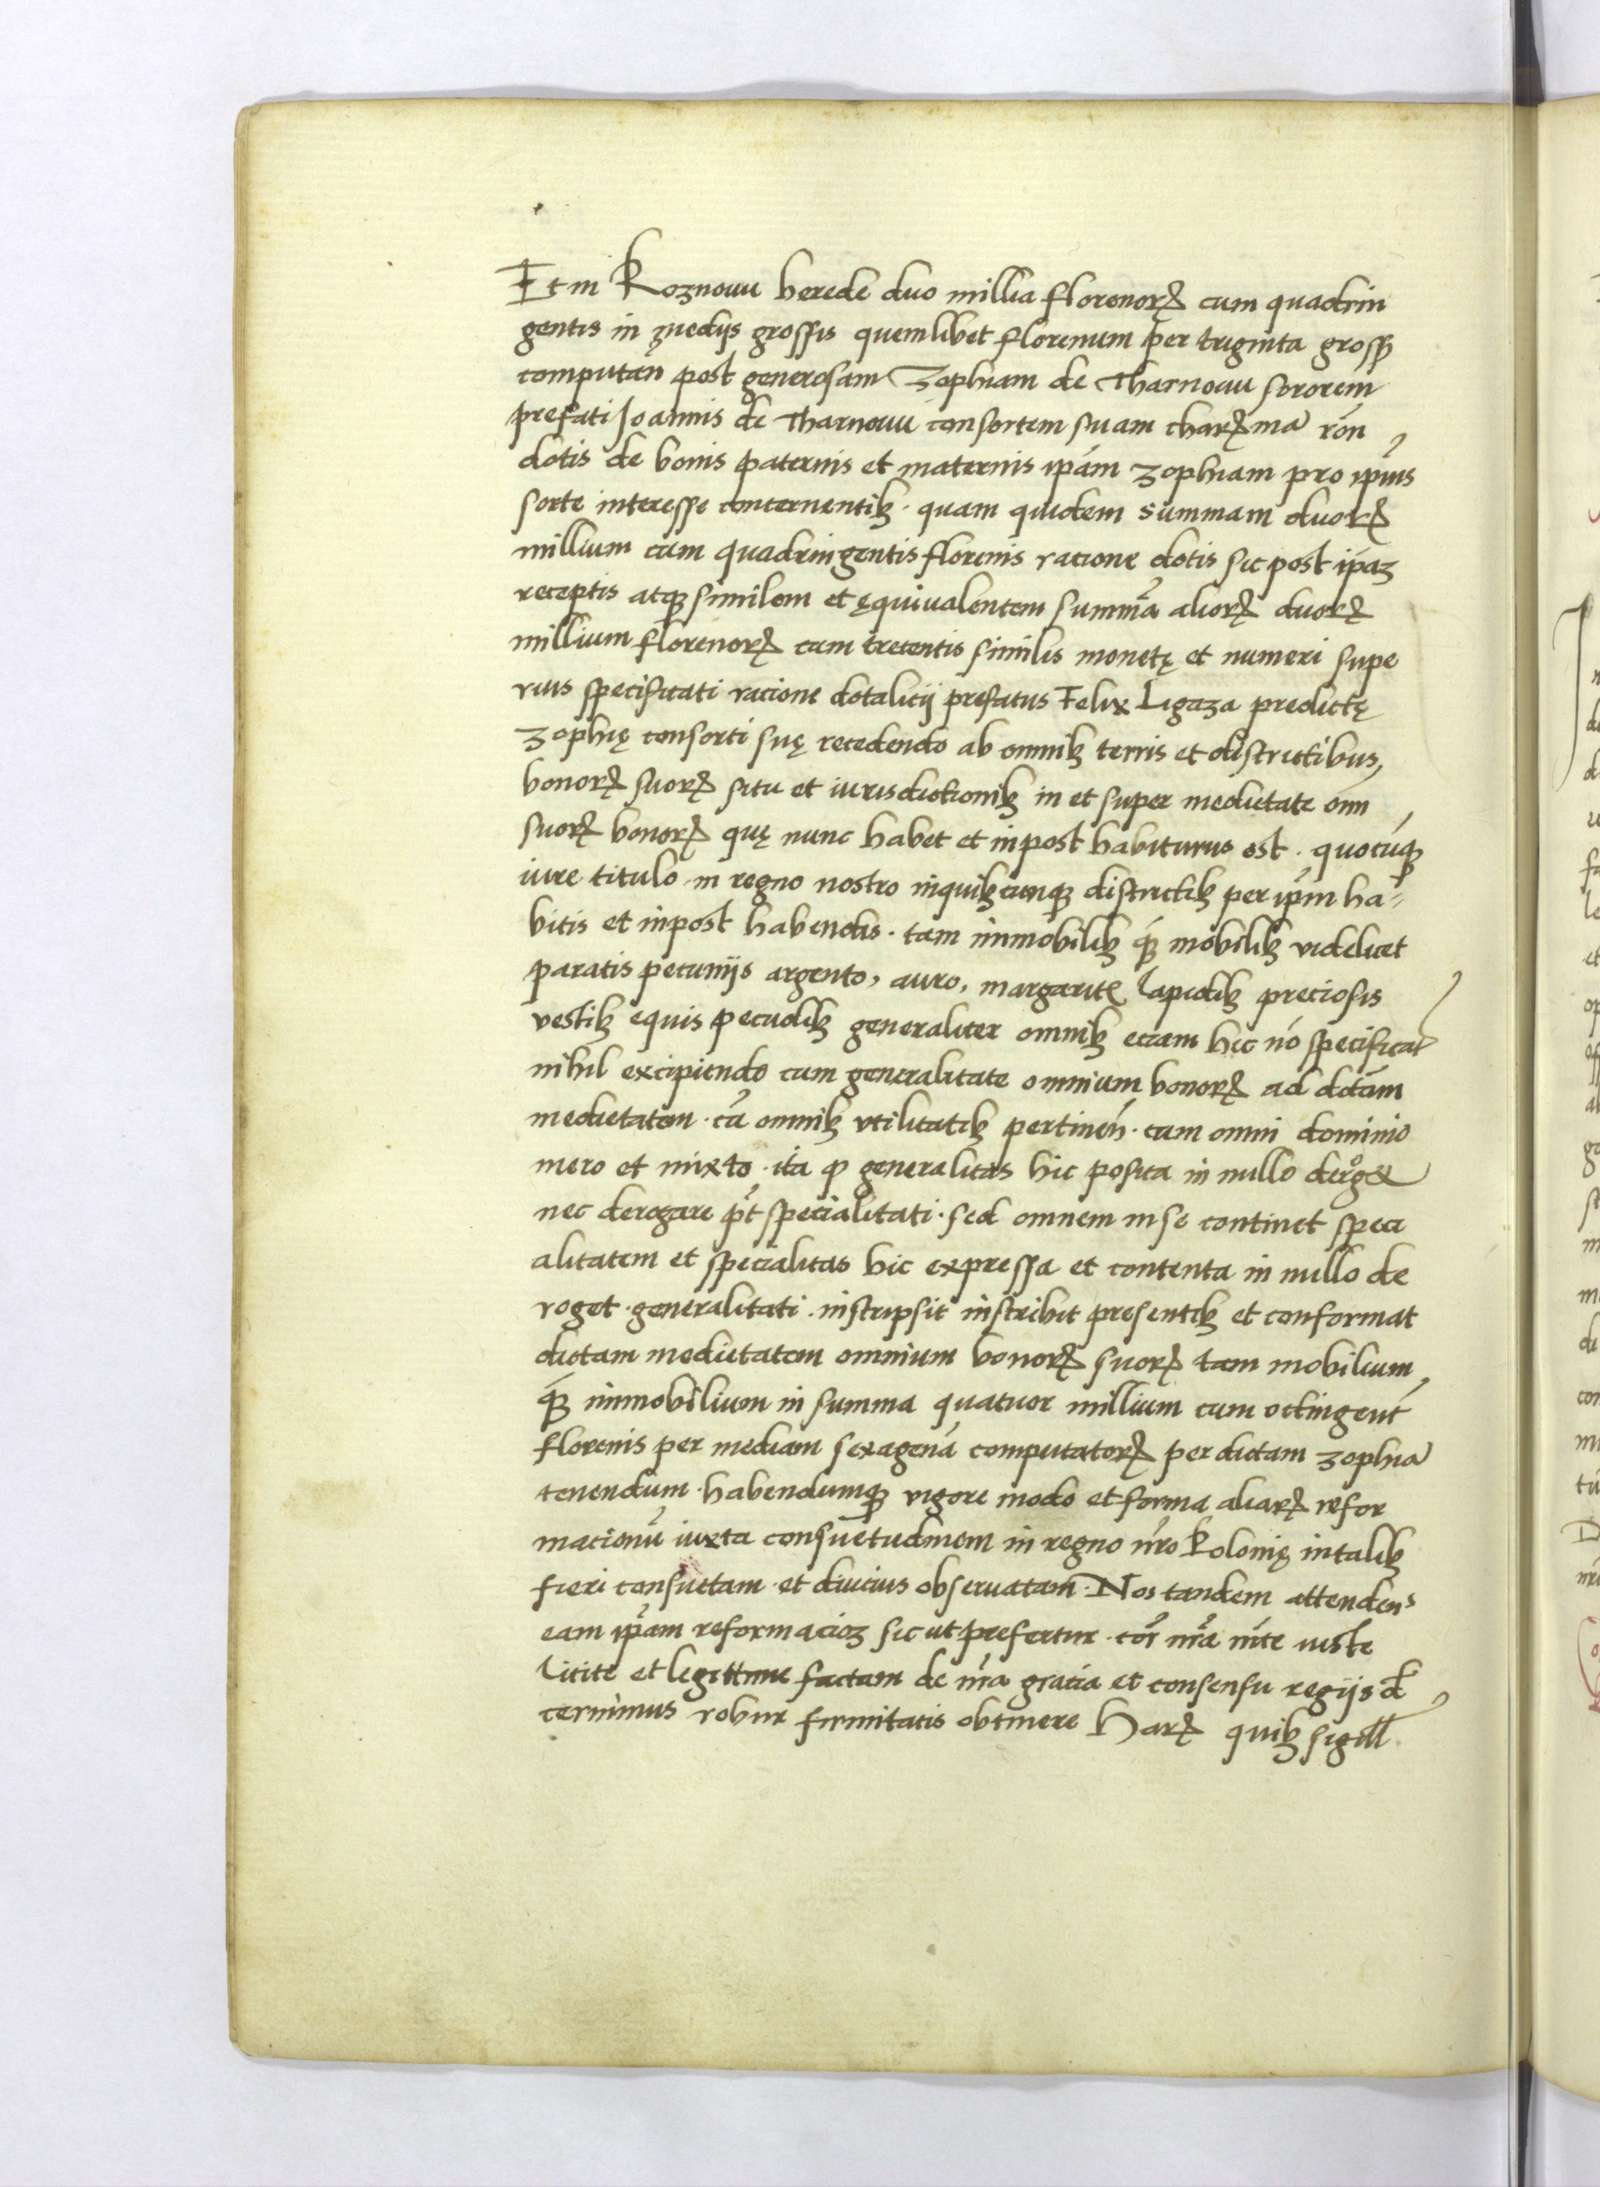 Et in Roznouu herede duo millia florenorꝝ cum quadrin
gentis in medijs grossis quemlibet florenum per triginta gross
computan post generosam Zophiam de Tharnouu sororem
prefati Joannis de Tharnouu consortem suam charꝝma rōn
dotis de bonis paternis et maternis ipām zophiam pro ipius
sorte interesse concernentibꝫ · quam quidem summam duorꝝ
millium cum quadringentis florenis racione dotis sic post ipāꝫ
receptis atqꝫ similem et ęquiualentem summā aliorꝝ duorꝝ
millium florenorꝝ cum trecentis similis monetę et numeri supe
rius specificati racione dotalicij prefatus Felix Ligaza predictę
zophię consorti suę recedendo ab omnibꝫ terris et districtibus,
bonorꝝ suorꝝ situ et iurisdictionibꝫ in et super medietate omn
suorꝝ bonorꝝ quę nunc habet et inpost habiturus est · quocūqꝫ
iure titulo in regno nostro inquibꝫcunqꝫ districtibꝫ per ipm ha-
bitis et inpost habendis · tam immobilibꝫ qꝫ mobilibꝫ videlicet
paratis pecunijs argento, auro, margaritꝭ lapidibꝫ preciosis
vestibꝫ equis pecudibꝫ generaliter omnibꝫ eciam hic nō specificat
nihil excipiendo cum generalitate omnium bonorꝝ ad dictām
medietatem · cū omnibꝫ vtilitatibꝫ pertinen̄ · cum omni dominio
mero et mixto · ita ꝙ generalitas hic posita in nullo derog&
nec derogare pt̄ specialitati · sed omnem in se continet speci
alitatem et specialitas hic expressa et contenta in nullo de
roget · generalitati · inscripsit inscribit presentibꝫ et conformat
dictam medietatem omnium bonorꝝ suorꝝ tam mobilium
qꝫ immobilium in summa quatuor millium cum octingent
florenis per mediam sexagenā computatorꝝ per dictam zophia
tenendum · habendumqꝫ vigore modo et forma aliarꝝ refor
macionū iuxta consuetudinem in regno nr̄o Polonię in talibꝫ
fieri consuetam · et diucius obseruatam · Nos tandem attendens
eam ipām reformacioꝫ sic ut prefertur · cor̄ nr̄a mte iuste
licite et legittime factam de nr̄a gratia et consensu regijs d
cernimus robur firmitatis obtinere Harꝝ quibꝫ sigill